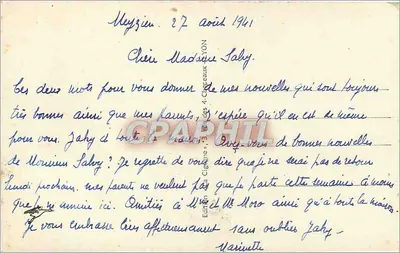 Meyzieu. 27 août 1941
Chère Madame Sahy.
Ces deux mots pour vous donner de mes nouvelles qui sont toujours
très bonnes ainsi que mes parents, j'espère qu'il en est de même
pour vous. Jaky et toute la Avez-vous de bonnes nouvelles
de Monsieur Sahy? Je regrette de vous dire que je ne serai pas de retour
lundi prochain. mes parents ne veulent pas que je parte cette semaine à moins
que je m'ennuie ici. Amitiés à Mme et M. Moro ainsi qu'à toute la maison.
Je vous embrasse bien affectueusement sans oublier Jaky-
Marinette
CPARAMA